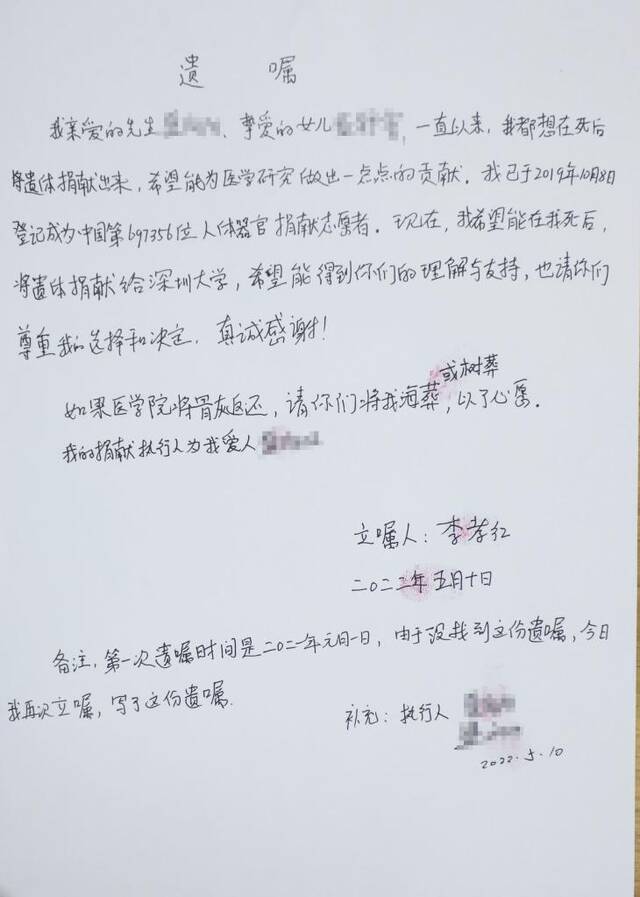 遗 嘱
我亲爱的先生 、挚爱的女儿 ，一直以来，我都想在死后
将遗体捐献出来，希望能为医学研究做出一点点的贡献。我已于2019年10月8日
登记成为中国第697356位人体器官捐献志愿者。现在，我希望能在我死后，
将遗体捐献给深圳大学，希望能得到你们的理解与支持，也请你们
尊重我的选择和决定。真诚感谢！
如果医学院将骨灰返还，请你们将我海葬或树葬，以了心愿。
我的捐献执行人为我爱人
立嘱人：李孝红
二〇二二年五月十日
备注，第一次遗嘱时间是二〇二一年元月一日，由于没找到这份遗嘱，今日
我再次立嘱，写了这份遗嘱.
补充：执行人
2022.5.10